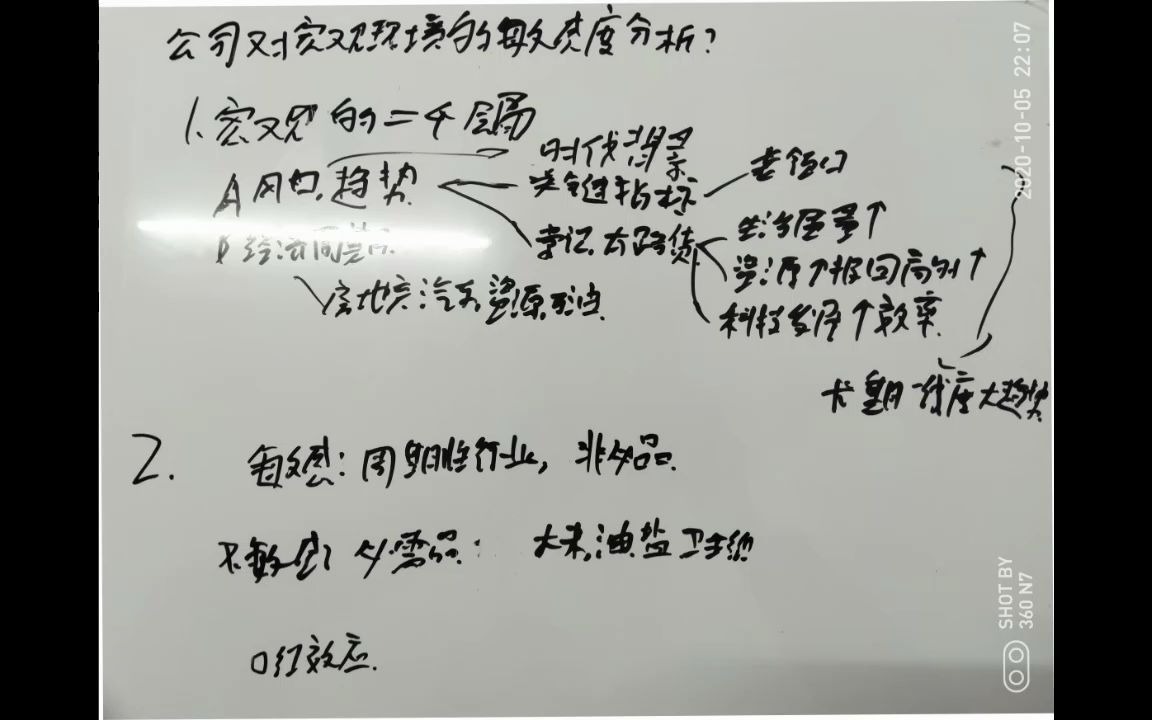 公司对宏观环境的敏感度分析?
1.宏观的二个层
时代背景
A 风口,趋势
关键指标
老领口
生活质量↑
B 经济周期
资源↑报回高州↑
房地产 汽车 资源 石油
科技发展↑效率
长期 大趋势
2.
敏感:周期性行业,非必品.
不敏感:必需品: 大米,油盐卫生纸
口红效应.
2020-10-05 22:07
SHOT BY
360 N7